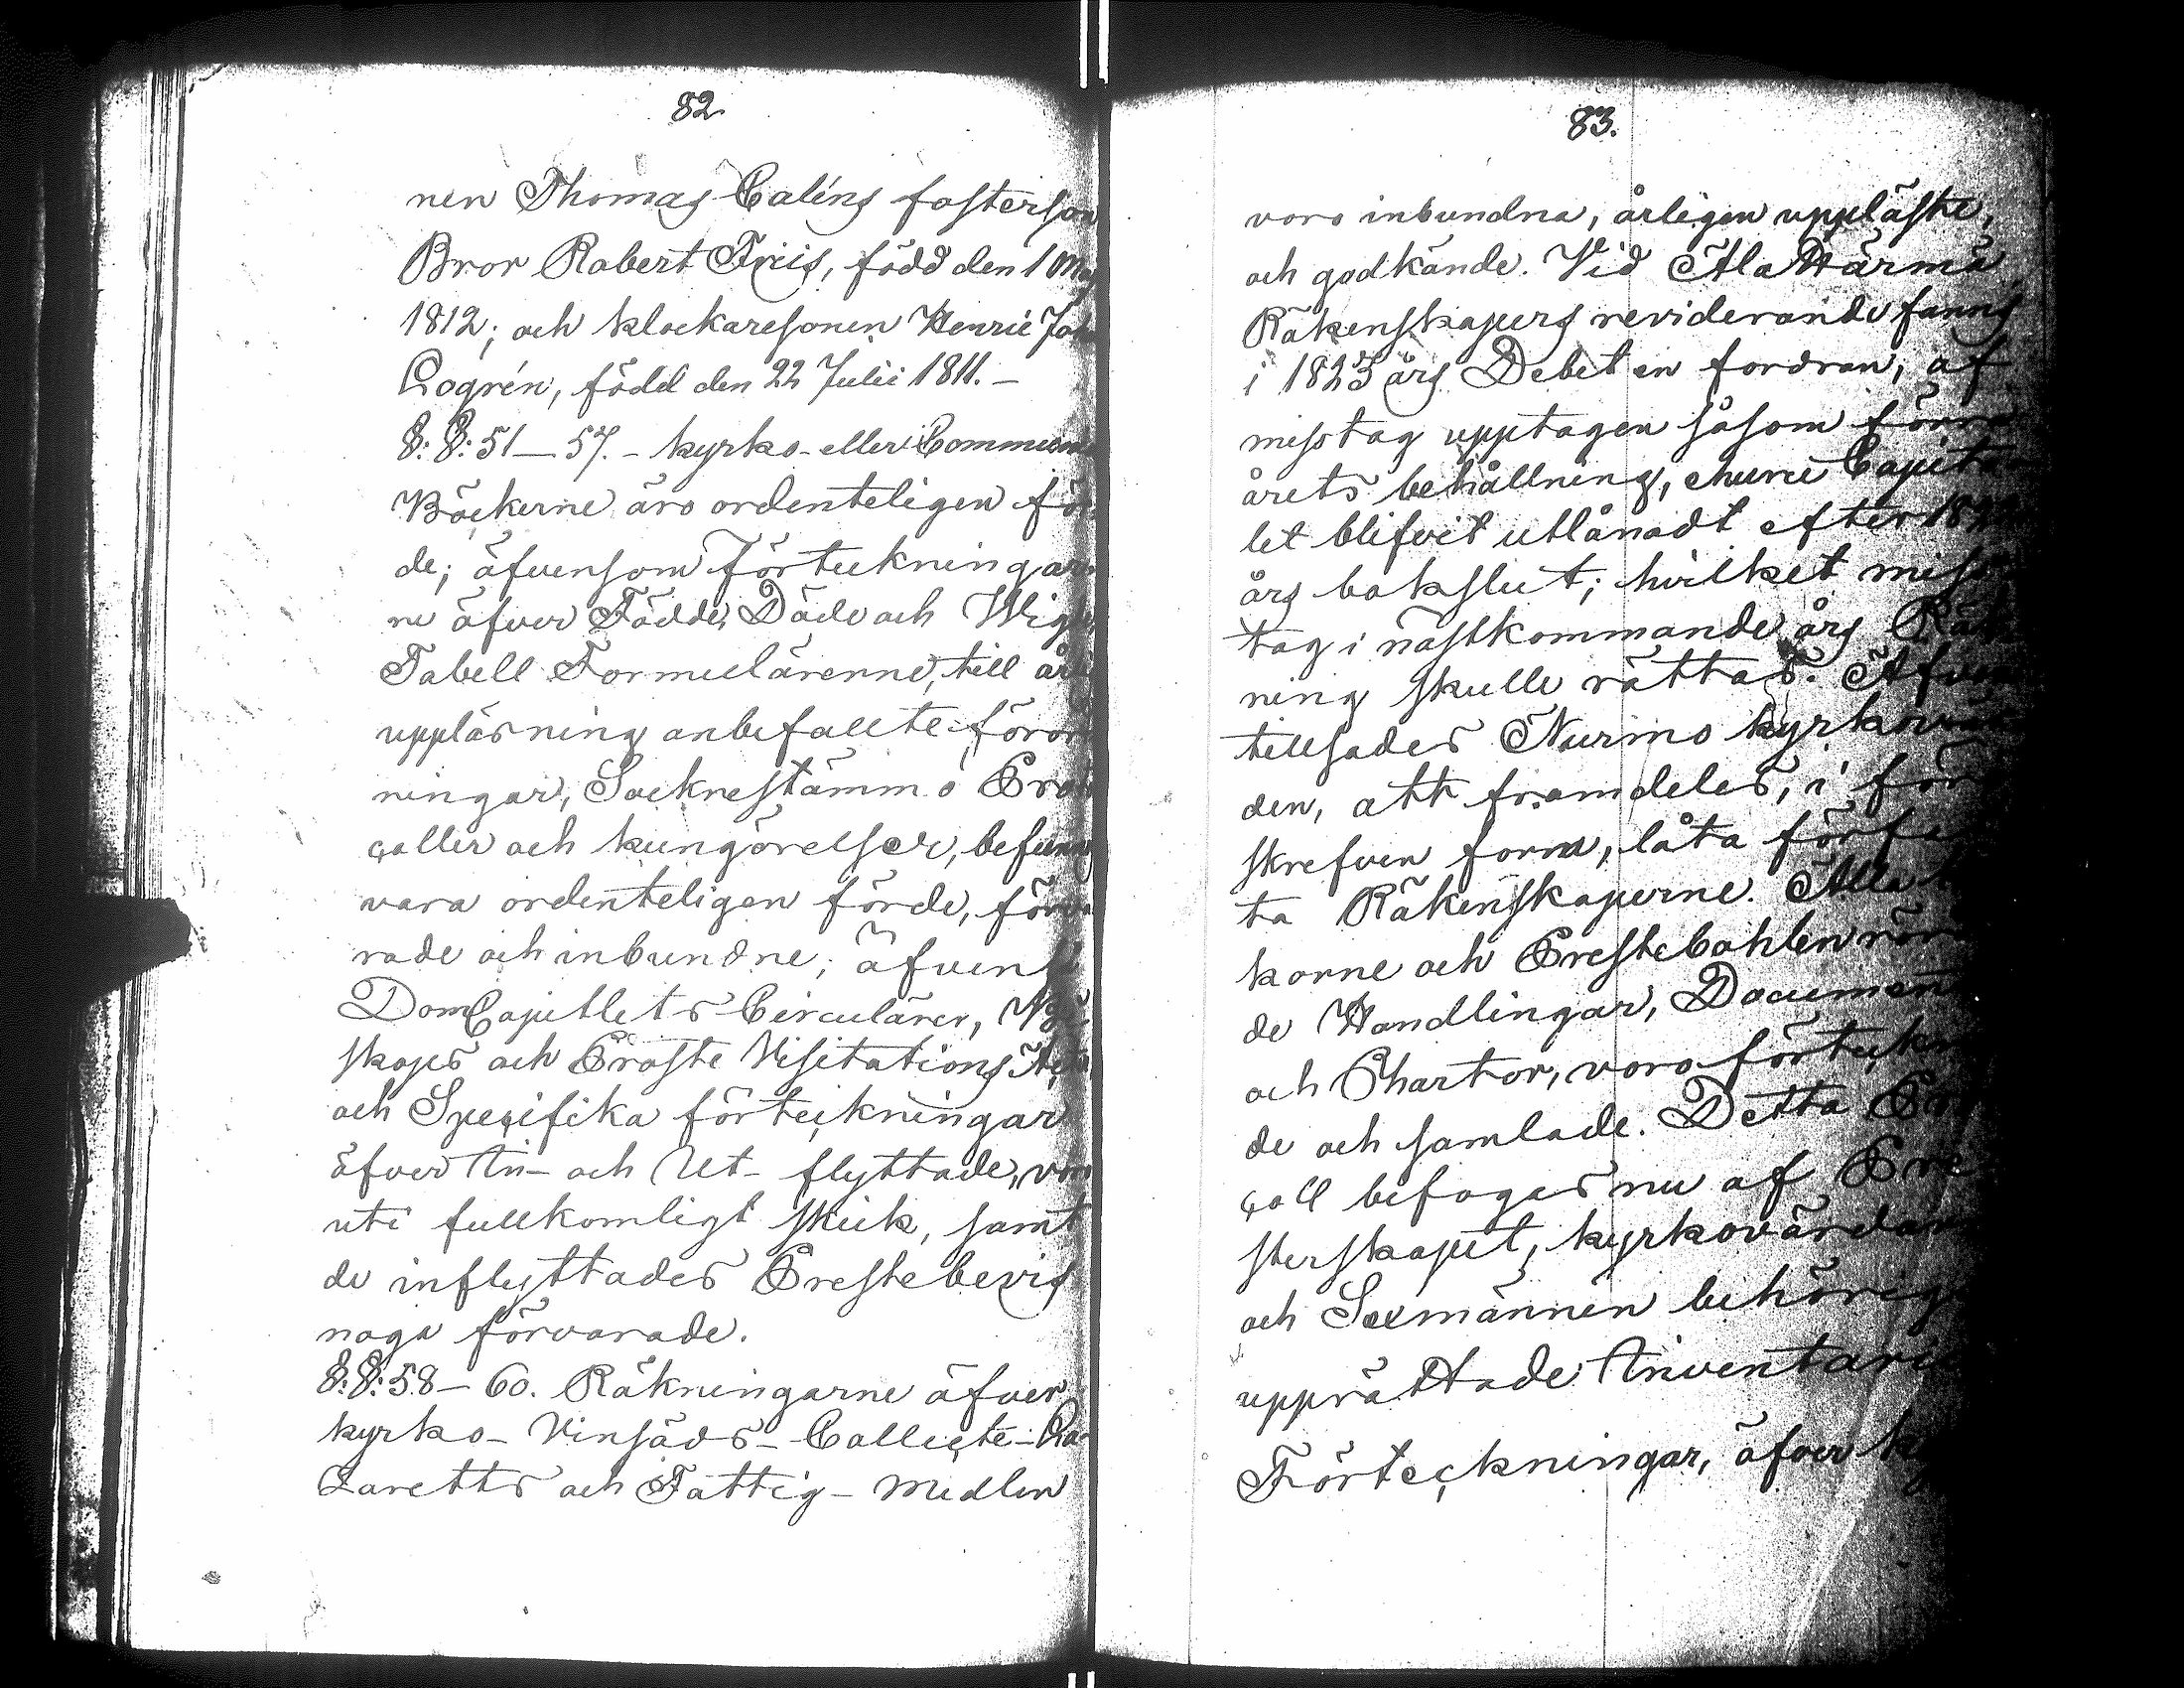 82.
nen Thomas Caléns fosterson
Bror Robert Friis, född den 1 Maj
1812; och klockaresonen Henric Joh
Logrén, född den 22 Julii 1811. –
§:§: 51 – 57. – kyrko- eller Communi
Böckerne äro ordenteligen för
de; äfvensom förteckningar
ne öfver Födde, Döde och Wigde
Tabell Formulärerne, till år
uppläsning anbefallte föror
ningar, Socknestämmo Proto
coller och kungörelser, befunn
vara ordenteligen förde, förva
rade och inbundne; äfven
DomCapitlets Circulärer,
skops och Proste Visitations Ac
och Specifika förteckningar
öfver In- och Ut- flyttade, voro
uti fullkomligt skick, samt
de inflyttades Prestebevis
noga förvarade.
§:§: 58 – 60. Räkningarne öfver
kyrko- Vinsäds- Collecte- La-
zaretts och Fattig- Medlen
83.
voro inbundna, årligen uppläste,
och godkände. Vid Ala Härmä
Räkenskapers reviderande fanns
i 1823 års Debet en fordran, af
misstag upptagen såsom förra
årets behållning, ehuru Capita
let blifvit utlånadt efter 182
års bokslut; hvilket miss
tag i nästkommande års Räk
ning skulle rättas. Äfven
tillsades Nurmo kyrkovär
den, att framdeles, i för
skrefven form, låta förfa
ta Räkenskaperne. Alla
korne och Prestebohlen rör
de Handlingar, Documen
och Chartor, voro förteckna
de och samlade. Detta Pro
coll bifogas nu af Pre
sterskapet, kyrkovärdar
och Sexmännen behörig
upprättade Inventari
Förteckningar, öfver